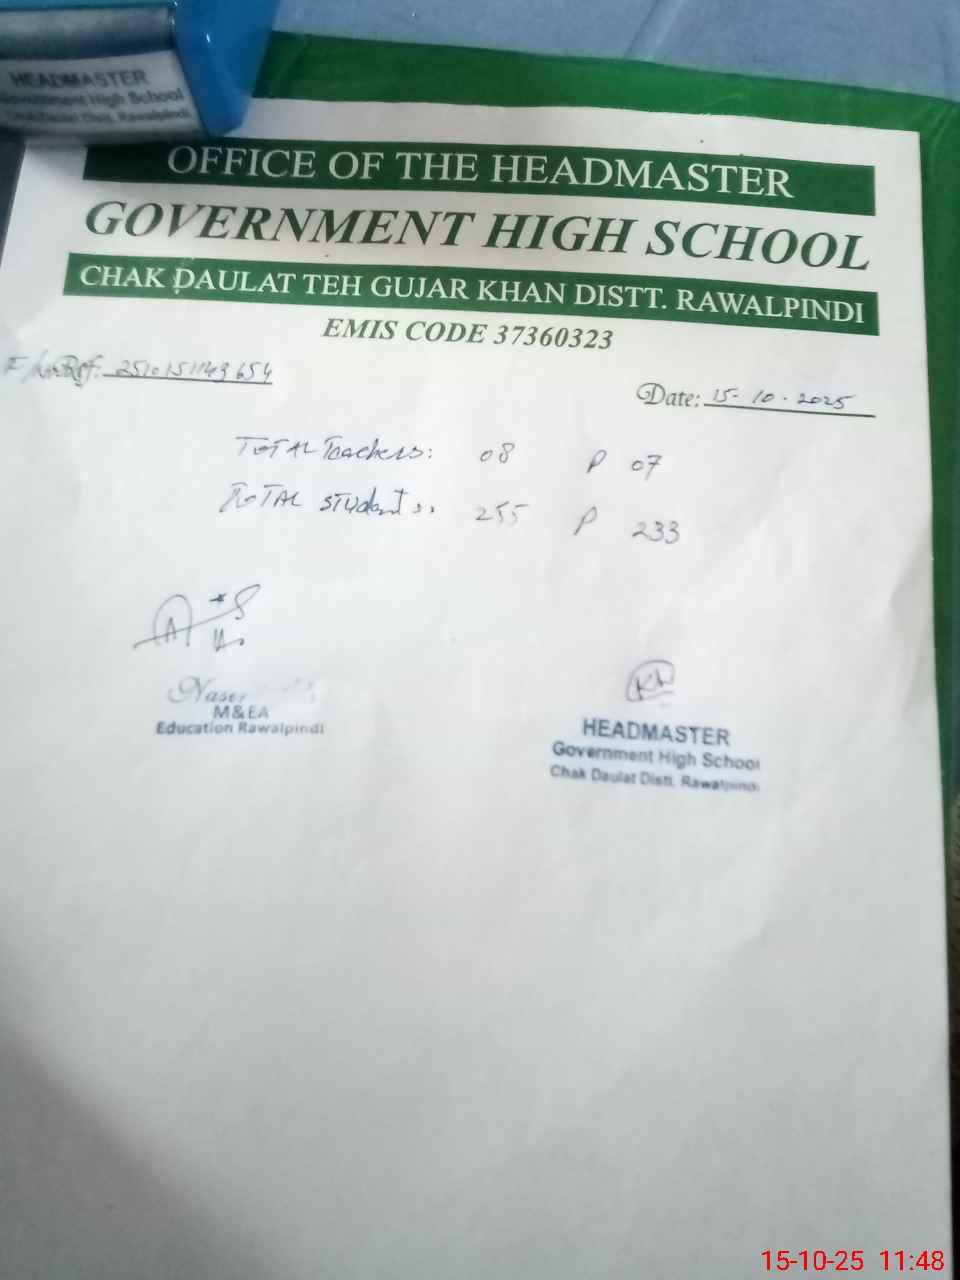 HEADMASTER
Government High School
Distt. Rawalpindi
OFFICE OF THE HEADMASTER
GOVERNMENT HIGH SCHOOL
CHAK DAULAT TEH GUJAR KHAN DISTT. RAWALPINDI
EMIS CODE 37360323
Ref: 2510151149654
Date: 15-10-2025
TOTAL Teachers: 08 P 07
TOTAL Students: 255 P 233
M&EA
Education Rawalpindi
HEADMASTER
Government High School
Chak Daulat Distt. Rawalpindi
15-10-25 11:48